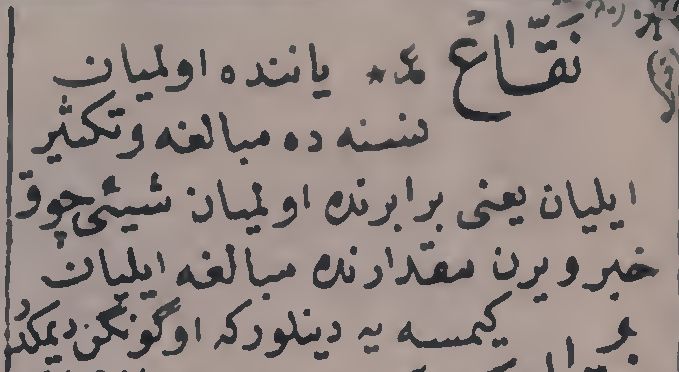 نَقَّاعٌ ع * یاننده اولمیان
نسنه ده مبالغه و تکثیر
ایلیان یعنی برابرنده اولمیان شیئی چوق
خبر ویرن مقدارنده مبالغه ایلیان
کیمسه یه دینلورکه اوگونگن دیمکدر